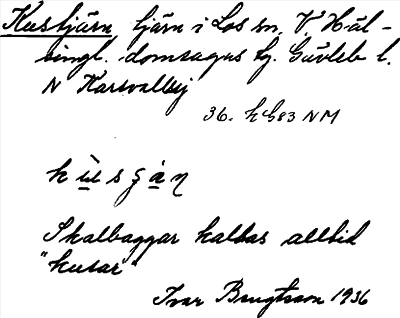 Kustjärn tjärn i Los sn, V. Häl-
singl. domsagas tg. Gävleb l.
N Karsvallsj
36. h c 83 NM
kùsʂàn
Skalbaggar kallas alltid
"kusar"
Ivar Bengtsson 1936